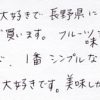 大好きで 長野県に
買います。フルーツ
味
、1番 シンプルな
大好きです。美味し